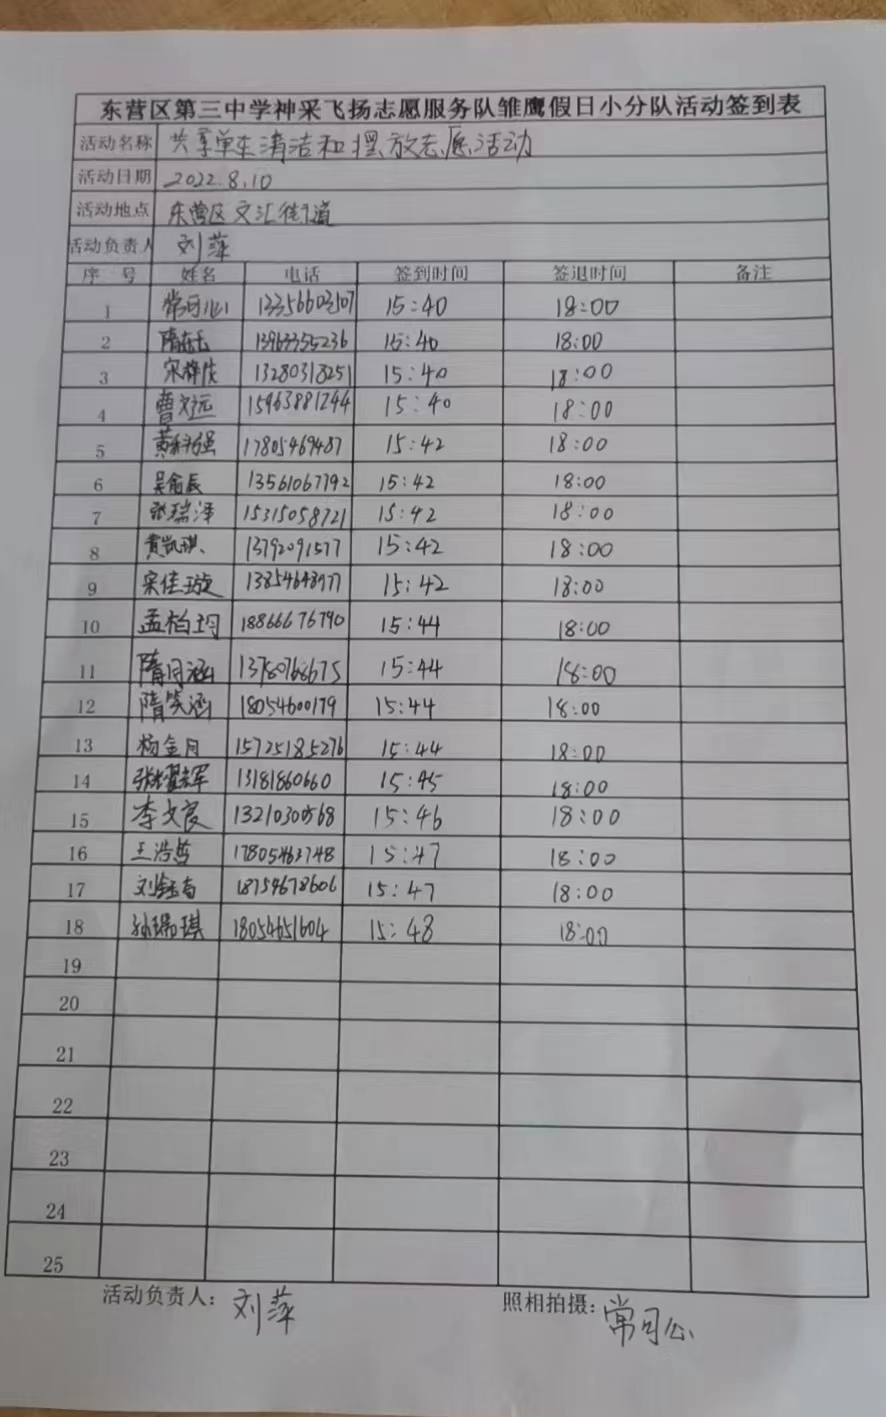 东营区第三中学神采飞扬志愿服务队雏鹰假日小分队活动签到表
活动名称 共享单车清洁和摆放志愿活动
活动日期 2022.8.10
活动地点 东营区文汇街道
活动负责人 刘萍
序号 姓名 电话 签到时间 签退时间 备注
1 13356603507 15:40 18:00
2 13963355236 15:40 18:00
3 13280318251 15:40 18:00
4 曹文远 15963881244 15:40 18:00
5 17805469487 15:42 18:00
6 13561067792 15:42 18:00
7 张瑞泽 15315058721 15:42 18:00
8 黄凯琪 13792091577 15:42 18:00
9 宋佳璇 13854648977 15:42 18:00
10 孟柏玥 18866676790 15:44 18:00
11 隋月涵 15:44 18:00
12 隋笑涵 18054600179 15:44 18:00
13 杨金月 15725185276 15:44 18:00
14 张耀辉 13181860660 15:45 18:00
15 李文良 13210300568 15:46 18:00
16 王浩哲 17805463748 15:47 18:00
17 18754678606 15:47 18:00
18 孙瑞琪 18054651604 15:48 18:00
19
20
21
22
23
24
25
活动负责人: 刘萍 照相拍摄: